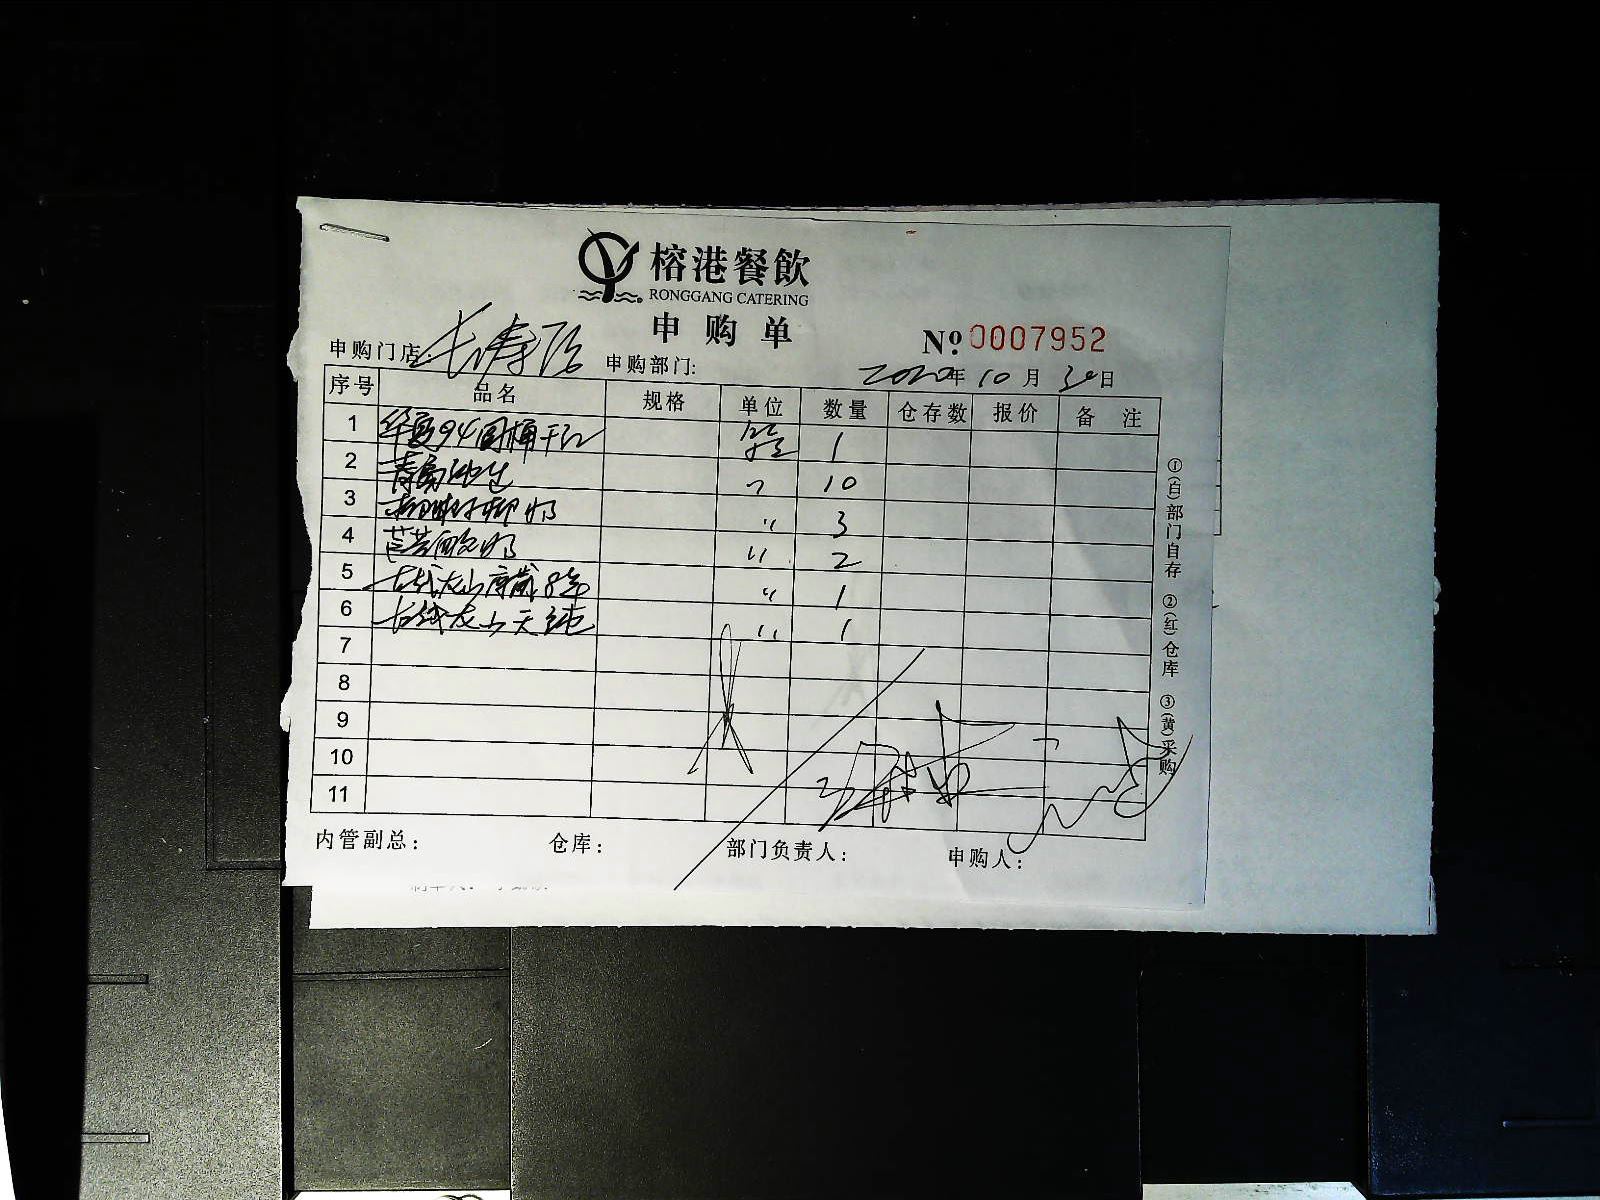 榕港餐飲
RONGGANG CATERING
申购单
№ 0007952
申购门店: 长寿路 申购部门: 2020年 10月 30日
序号 品名 规格 单位 数量 仓存数 报价 备注
1 华夏94圆桶干红 箱 1
2 青岛纯生 〃 10
3 椰奶 〃 3
4 芒果酸奶 〃 2
5 古越龙山库藏8年 〃 1
6 古越龙山天纯 〃 1
7
8
9
10
11
内管副总: 仓库: 部门负责人: 申购人:
①(白)部门自存 ②(红)仓库 ③(黄)采购